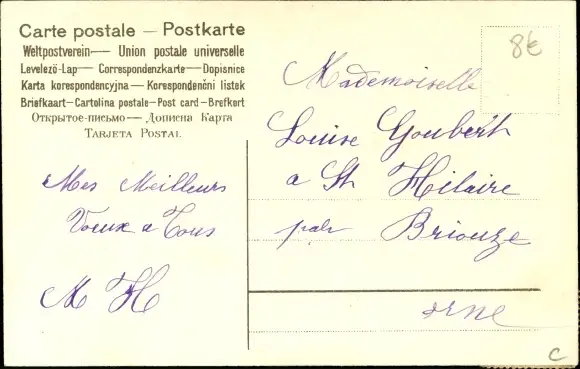 Carte postale — Postkarte
Weltpostverein — Union postale universelle
Levelező-Lap — Correspondenzkarte — Dopisnice
Karta korespondencyjna — Korespondenční listek
Briefkaart — Cartolina postale — Post card — Brefkort
Открытое-письмо — Дописна Карта
Tarjeta Postal
8€
Mademoiselle
Louise Goubert
a St Hilaire
par Briouze
orne
Mes Meilleurs
Voeux a Tous
M H
C